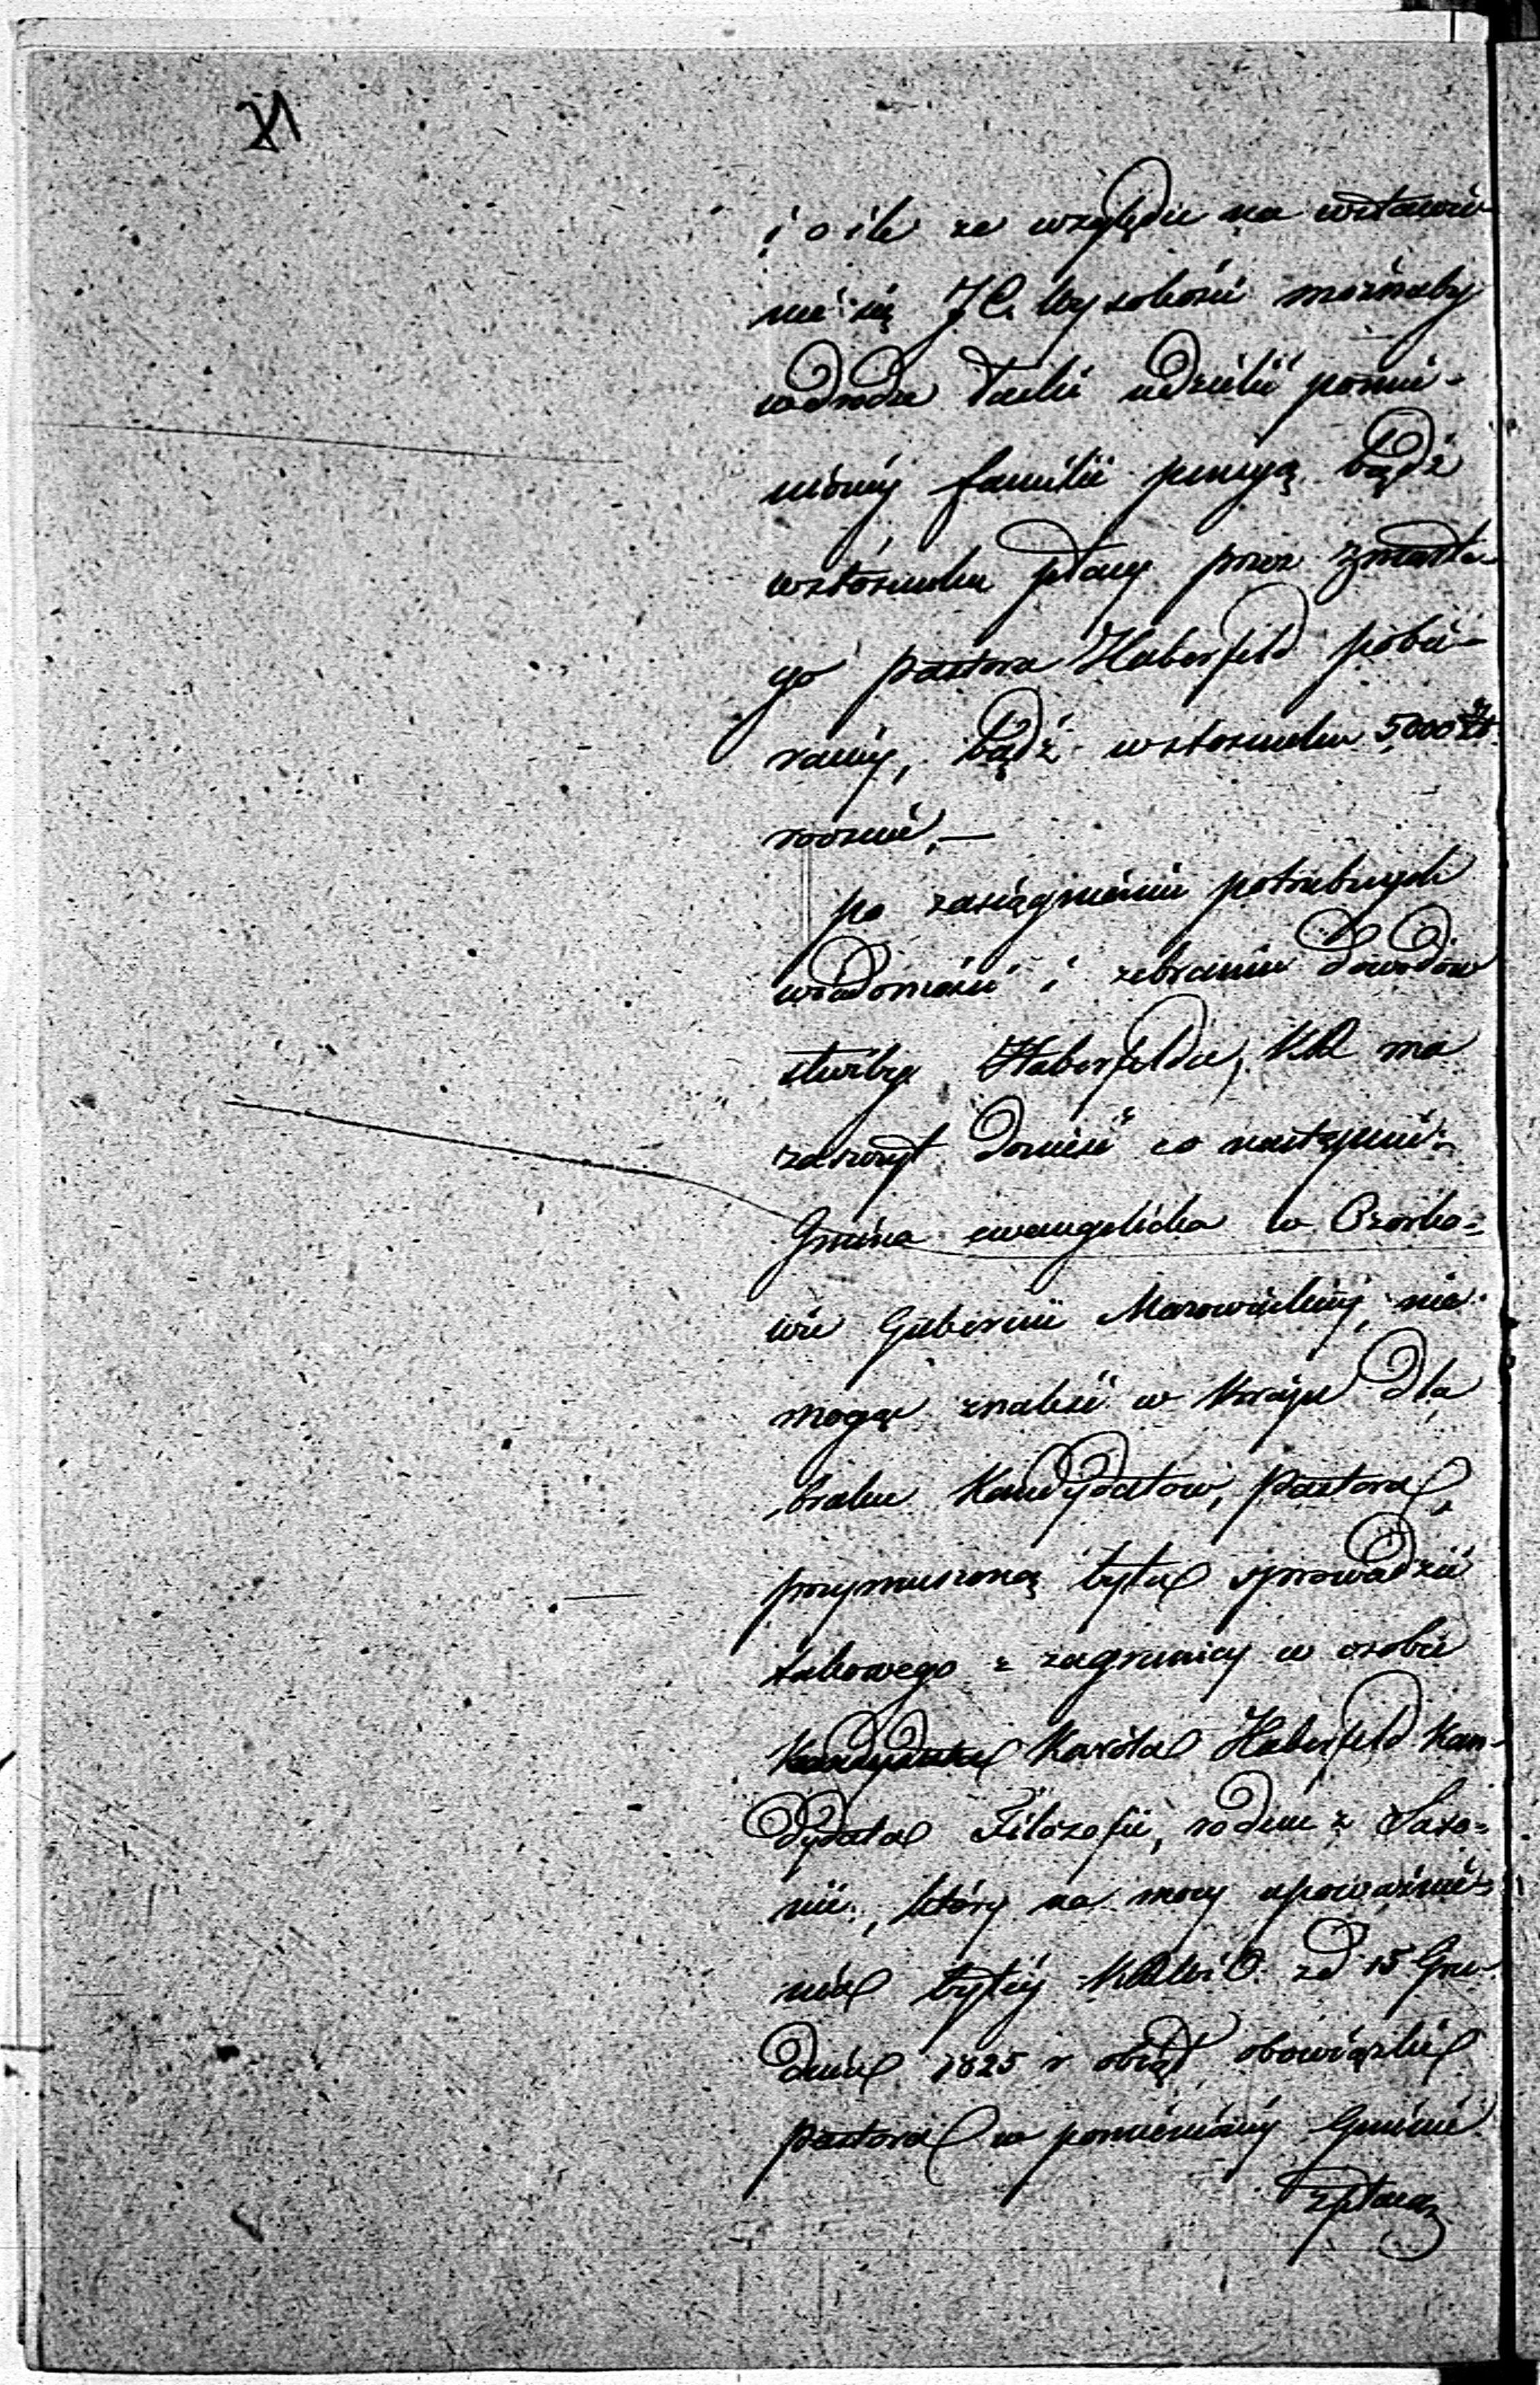 i o ile ze względu na wstawie
nie się J C. Wysokości możnaby
wdrodze łaski udzielić pomie-
nioney familii pensyą bądź
wstosunku płacy przez zmarłe
go pastora Haberfeld pobie-
raney, bądź wstosunku 5000 Zł
rocznie. —
po zasiągnieniu potrzebnych
wiadomości i zebraniu dowodów
służby Haberfelda, KR ma
zaszczyt donieść co następuie:
Gmina ewangelicka w Ozorko=
wie Gubernii Mazowieckiey, nie
mogąc znaleść w kraju dla
braku Kandydatow, pastora,
przymuszoną była sprowadzić
takowego z zagranicy w osobie
Karola Haberfeld Kan-
dydata Filozofii, rodem z Saxo=
nii, który na mocy upoważnie-
nia byłéy od 15 Gru
dnia 1825 r objął obowiązki
pastora w pomienioney Gminie
z płacą